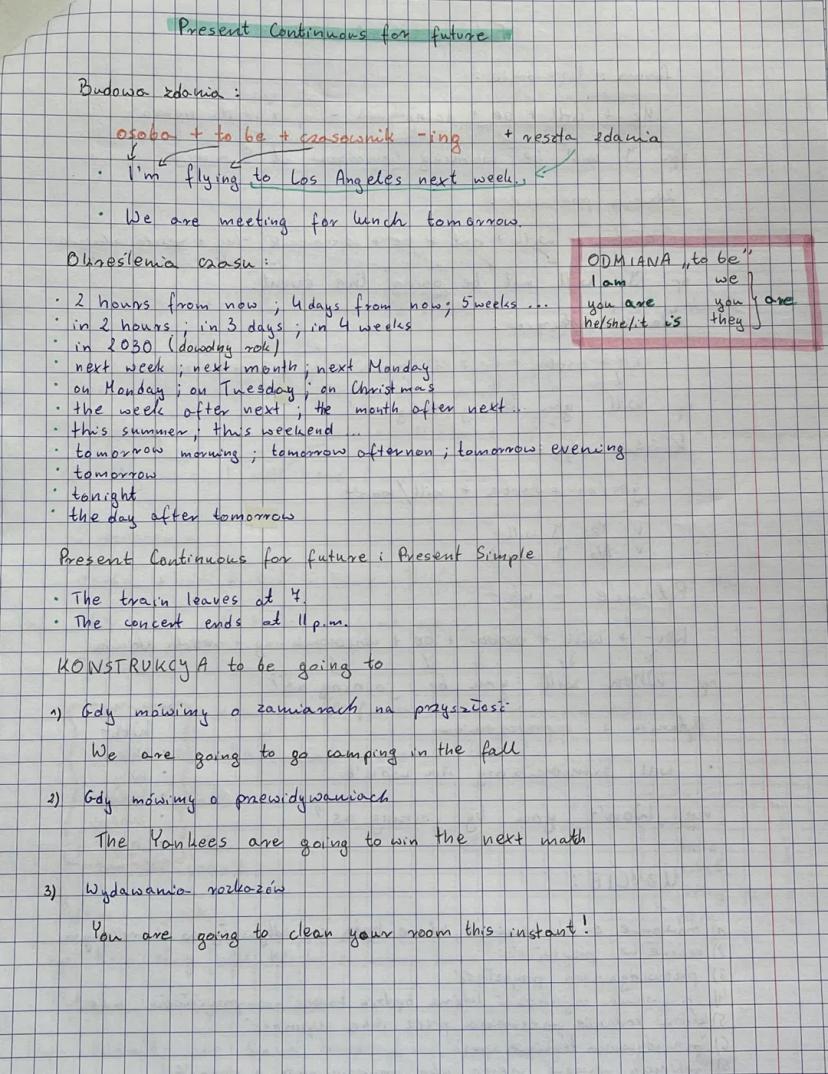 Present Continuous for future
Budowa zdania :
osoba + to be + czasownik -ing + reszta zdania
• I'm flying to Los Angeles next week.
• We are meeting for lunch tomorrow.
Określenia czasu :
ODMIANA „to be"
I am we
you are you are
he/she/it is they
• 2 hours from now ; 4 days from now ; 5 weeks ...
• in 2 hours ; in 3 days ; in 4 weeks
• in 2030 (dowolny rok)
• next week ; next month ; next Monday
• on Monday ; on Tuesday ; on Christmas
• the week after next ; the month after next ..
• this summer ; this weekend ...
• tomorrow morning ; tomorrow afternon ; tomorrow evening
• tomorrow
• tonight
• the day after tomorrow
Present Continuous for future i Present Simple
• The train leaves at 7.
• The concert ends at 11 p.m.
KONSTRUKCYA to be going to
1) Gdy mówimy o zamiarach na przyszłość
We are going to go camping in the fall
2) Gdy mówimy o przewidywaniach
The Yankees are going to win the next math
3) Wydawania rozkazów
You are going to clean your room this instant!